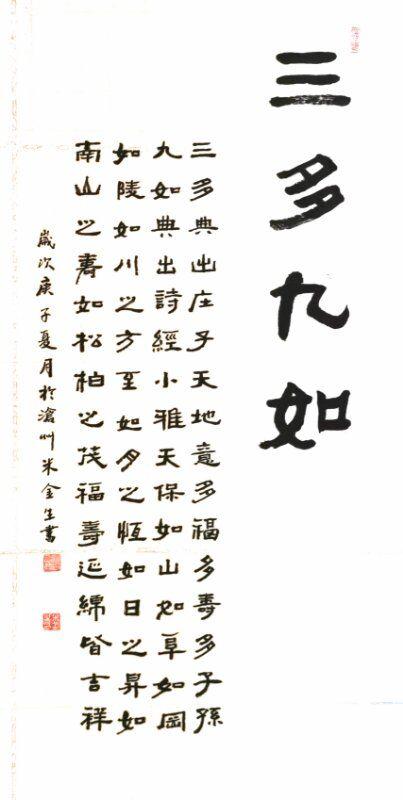 三多九如
三多典出庄子天地意多福多壽多子孫
九如典出詩經小雅天保如山如阜如岡
如陵如川之方至如月之恆如日之昇如
南山之壽如松柏之茂福壽延綿皆吉祥
歲次庚子夏月於滄州米金生書